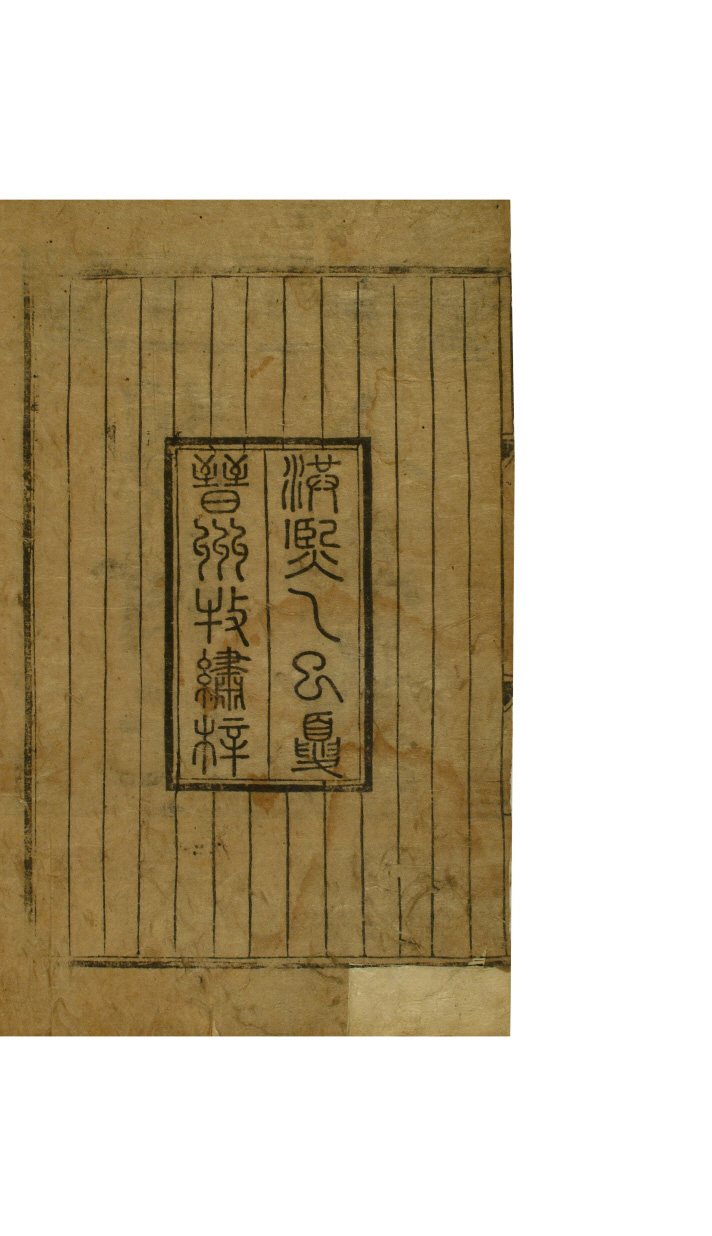 洪熙乙巳夏
晉州牧繡梓